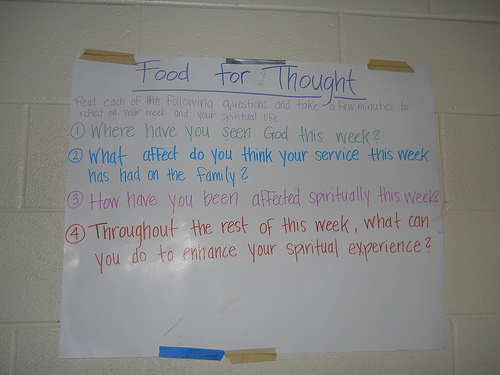 Food for Thought
Read each of the following questions and take a few minutes to
reflect on your week and your spiritual life
① Where have you seen God this week?
② What affect do you think your service this week
has had on the family?
③ How have you been affected spiritually this week?
④ Throughout the rest of this week, what can
you do to enhance your spiritual experience?